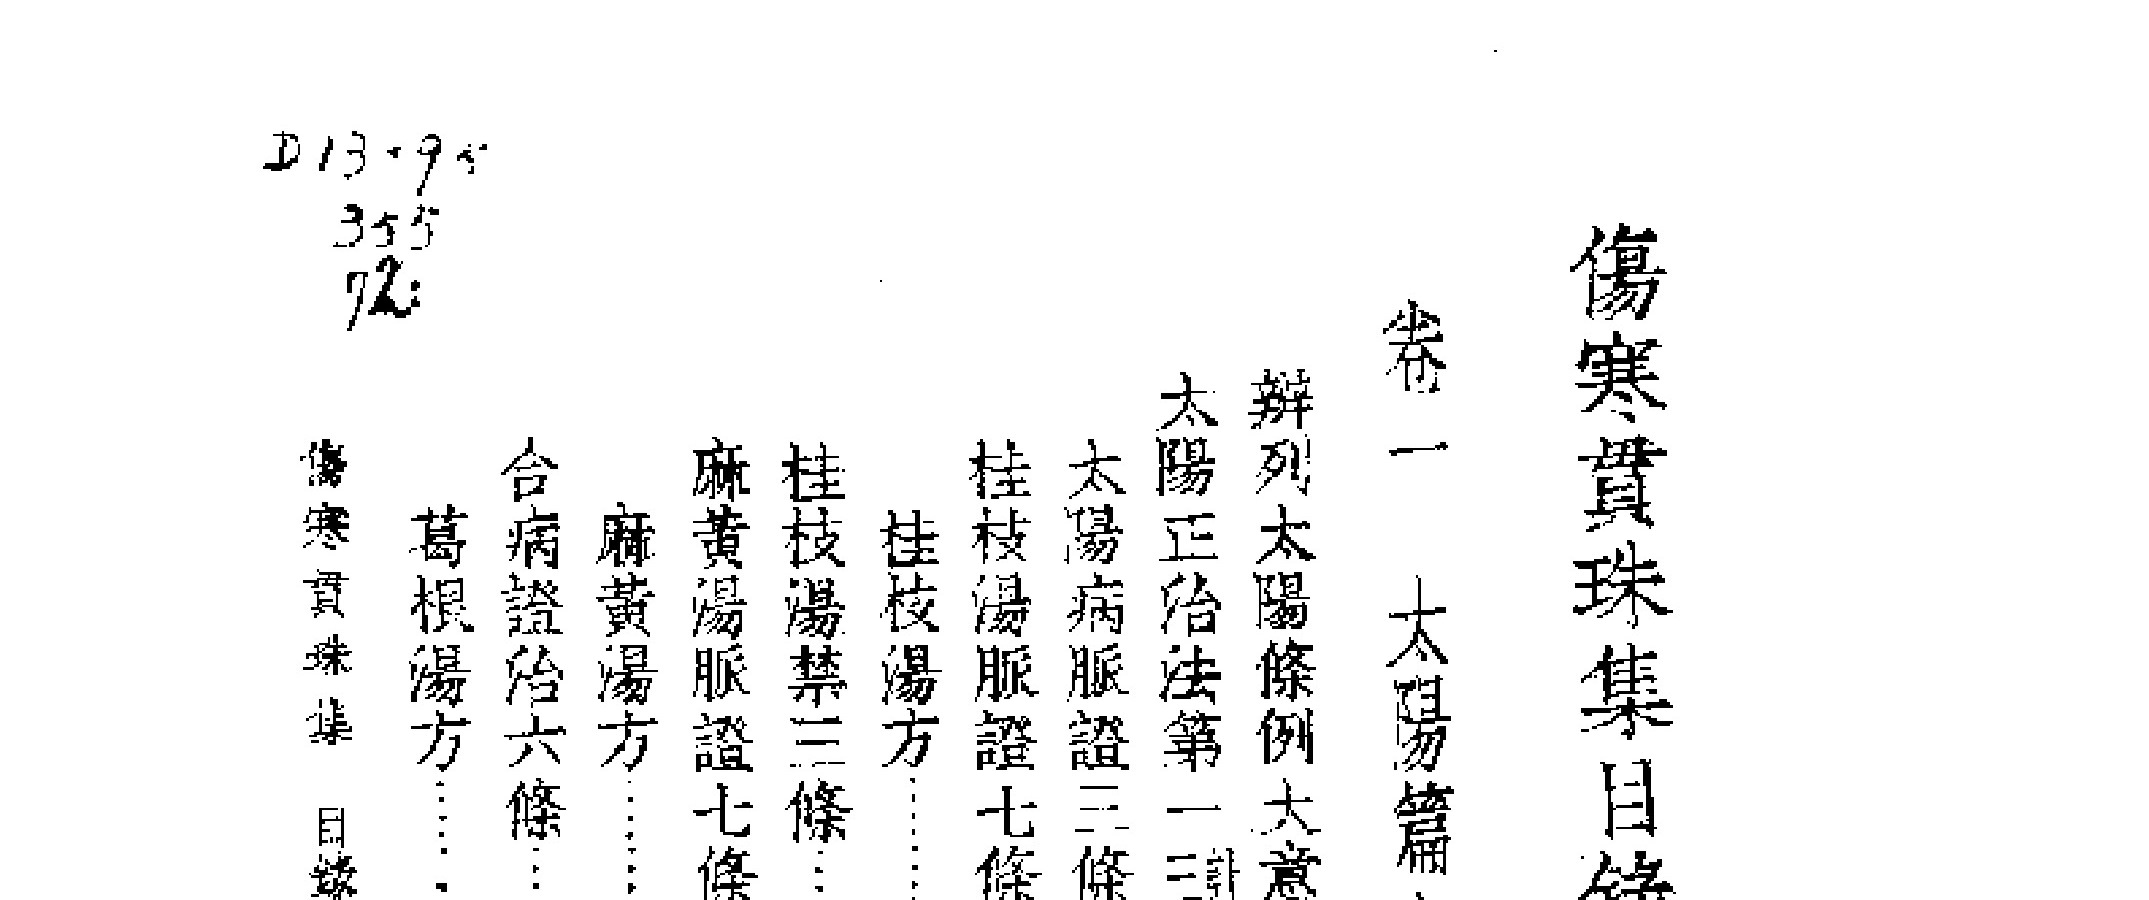 傷寒貫珠集目錄
卷一 太陽篇
辯列太陽條例大意
太陽正治法第一
太陽病脈證三條
桂枝湯脈證七條
桂枝湯方……
桂枝湯禁三條…
麻黃湯脈證七條
麻黃湯方……
合病證治六條…
葛根湯方……
傷寒貫珠集 目錄
D13·95
355
72: